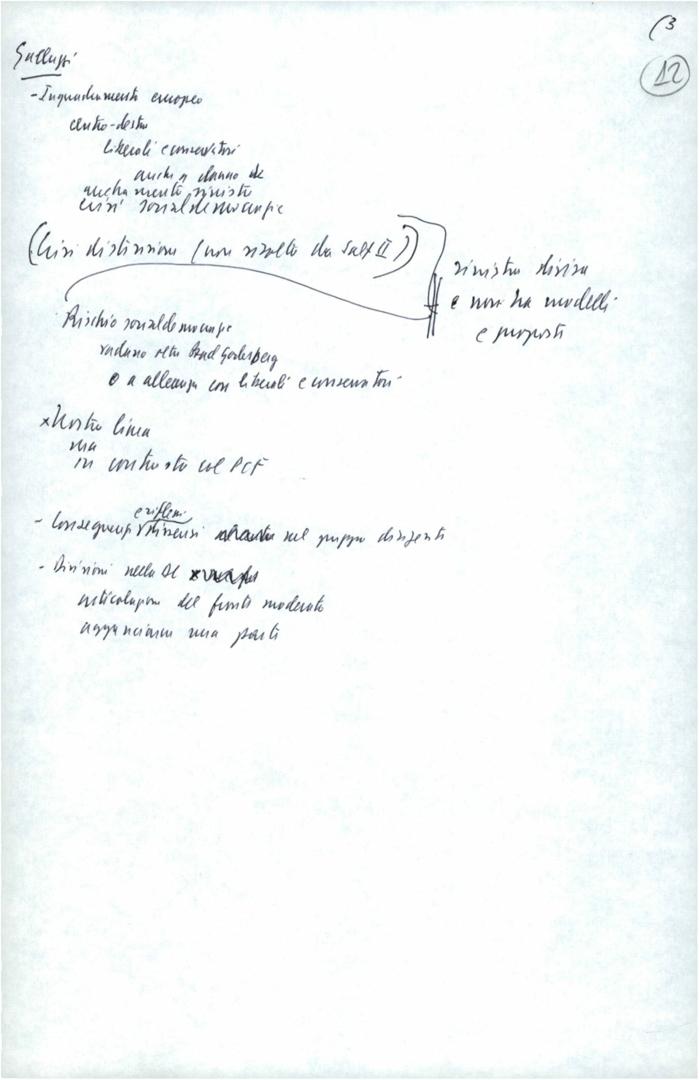 (3
12
Galluzzi
- Inquadramento europeo
centro-destra
liberali e conservatori
anche a danno de
anche mente sinistra
crisi socialdemocrazie
(Crisi distensione (non risolta da Salt II))
sinistra divisa
e non ha modelli
e proposte
Rischio socialdemocrazie
vadano oltre Bad Godesberg
o a alleanza con liberali e conservatori
x Nostra linea
ma
in contrasto col PCF
e riflessi
- Conseguenze dissensi sul gruppo dirigente
- Divisioni nella DC
articolazione del fronte moderato
agganciarne una parte